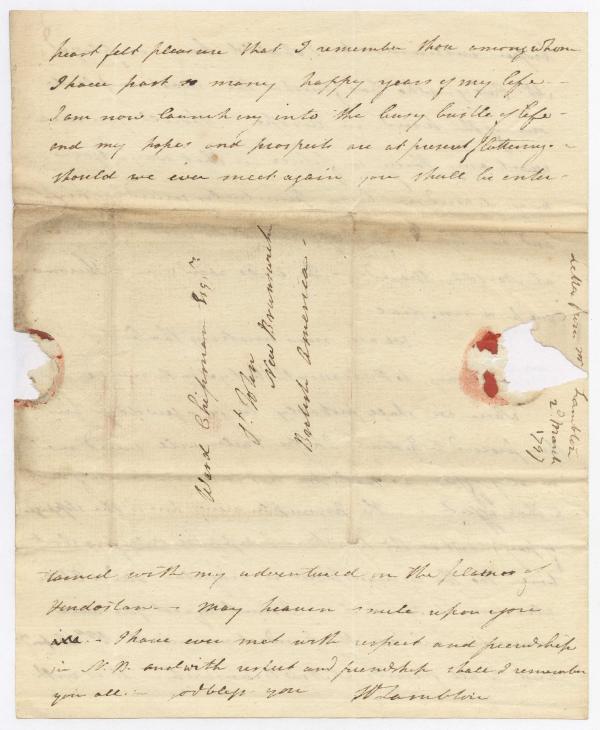 heart felt pleasure that I remember those among whom
I have past so many happy years of my life –
I am now launching into the busy bustle of life –
and my hopes and prospects are at present flattering. –
should we ever meet again you shall be enter-
Ward Chipman Esqr.
St. John
New Brunswick
British America –
Letter from Wm Lambton
2d March
1797
tained with my adventures on the plains of
Hindostan – May heaven smile upon you
– I have ever met with respect and friendship
in N.B. and with respect and friendship shall I remember
you all. – God bless you WLambton